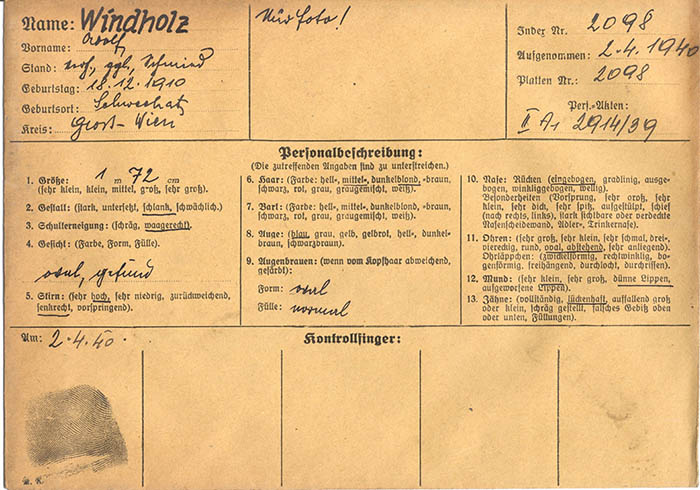 Name: Windholz
Vorname: Adolf
Stand: verh., ggl., Schmied
Geburtstag: 18.12.1910
Geburtsort: Schwechat
Kreis: Groß-Wien
Nur Foto!
Index Nr. 2098
Aufgenommen: 2.4.1940
Platten Nr.: 2098
Pers.-Akten:
II A1 2914/39
Personalbeschreibung:
(Die zutreffenden Angaben sind zu unterstreichen.)
1. Größe: 1 m 72 cm
(sehr klein, klein, mittel, groß, sehr groß).
2. Gestalt: (stark, untersetzt, schlank, schwächlich).
3. Schulterneigung: (schräg, waagerecht).
4. Gesicht: (Farbe, Form, Fülle).
oval, gesund
5. Stirn: (sehr hoch, sehr niedrig, zurückweichend,
senkrecht, vorspringend).
6. Haar: (Farbe: hell-, mittel-, dunkelblond, -braun,
schwarz, rot, grau, graugemischt, weiß).
7. Bart: (Farbe: hell-, mittel-, dunkelblond, -braun,
schwarz, rot, grau, graugemischt, weiß).
8. Auge: (blau, grau, gelb, gelbrot, hell-, dunkel-
braun, schwarzbraun).
9. Augenbrauen: (wenn vom Kopfhaar abweichend,
gefärbt):
Form: oval
Fülle: normal
10. Nase: Rücken (eingebogen, gradlinig, ausge-
bogen, winkliggebogen, wellig).
Besonderheiten (Vorsprung, sehr groß, sehr
klein, sehr dick, sehr spitz, aufgestülpt, schief
(nach rechts, links), stark sichtbare oder verdeckte
Nasenscheidewand, Adler-, Trinkernase).
11. Ohren: (sehr groß, sehr klein, sehr schmal, drei-,
viereckig, rund, oval, abstehend, sehr anliegend).
Ohrläppchen: (zwickelförmig, rechtwinklig, bo-
genförmig, freihängend, durchlocht, durchrissen).
12. Mund: (sehr klein, sehr groß, dünne Lippen,
aufgeworfene Lippen).
13. Zähne: (vollständig, lückenhaft, auffallend groß
oder klein, schräg gestellt, falsches Gebiß oben
oder unten, Füllungen).
Am: 2.4.40.
Kontrollfinger: